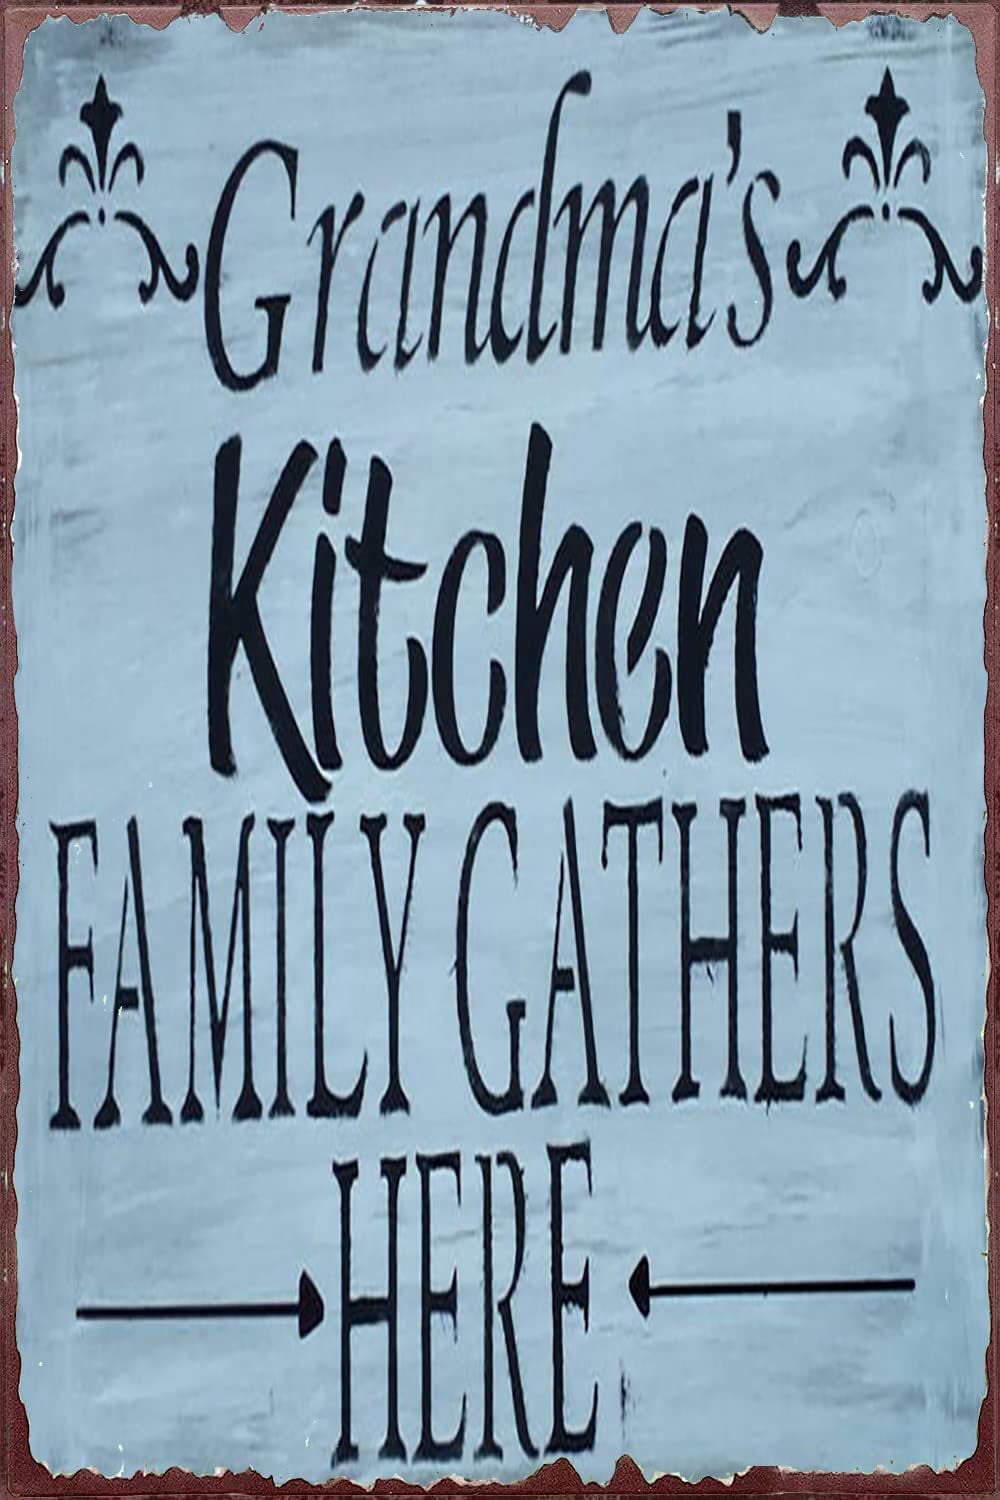 Grandma's
Kitchen
FAMILY GATHERS
HERE